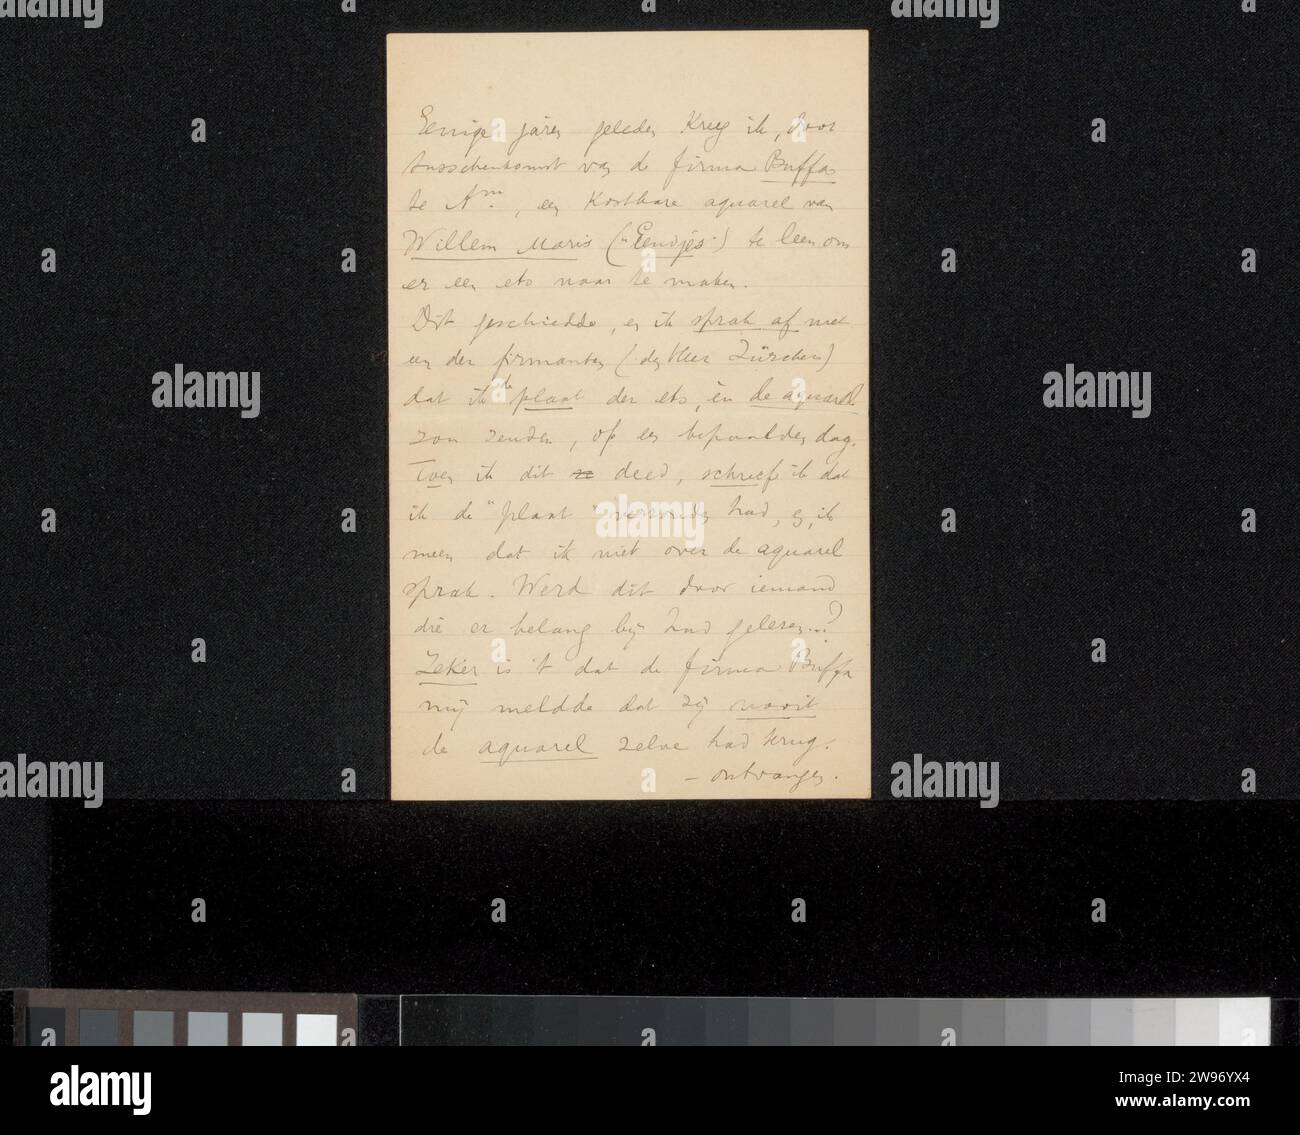 Eenige jaren geleden kreeg ik, door
tusschenkomst van de firma Buffa
te A'm., een kostbare aquarel van
Willem Maris ("Eendjes") te leen om
er een ets naar te maken.
Dit geschiedde, en ik sprak af met
een der firmanten (den Heer Zürcher)
dat ik de plaat der ets, èn de aquarel
zou zenden, op een bepaalden dag.
Toen ik dit ze deed, schreef ik dat
ik de "plaat" verzonden had, en, ik
meen dat ik niet over de aquarel
sprak. Werd dit door iemand
die er belang bij had gelezen...?
Zeker is 't dat de firma Buffa
mij meldde dat zij nooit
de aquarel zelve had terug.
– ontvangen.
alamy
a
alamy
Image ID: 2W96YX4
www.alamy.com